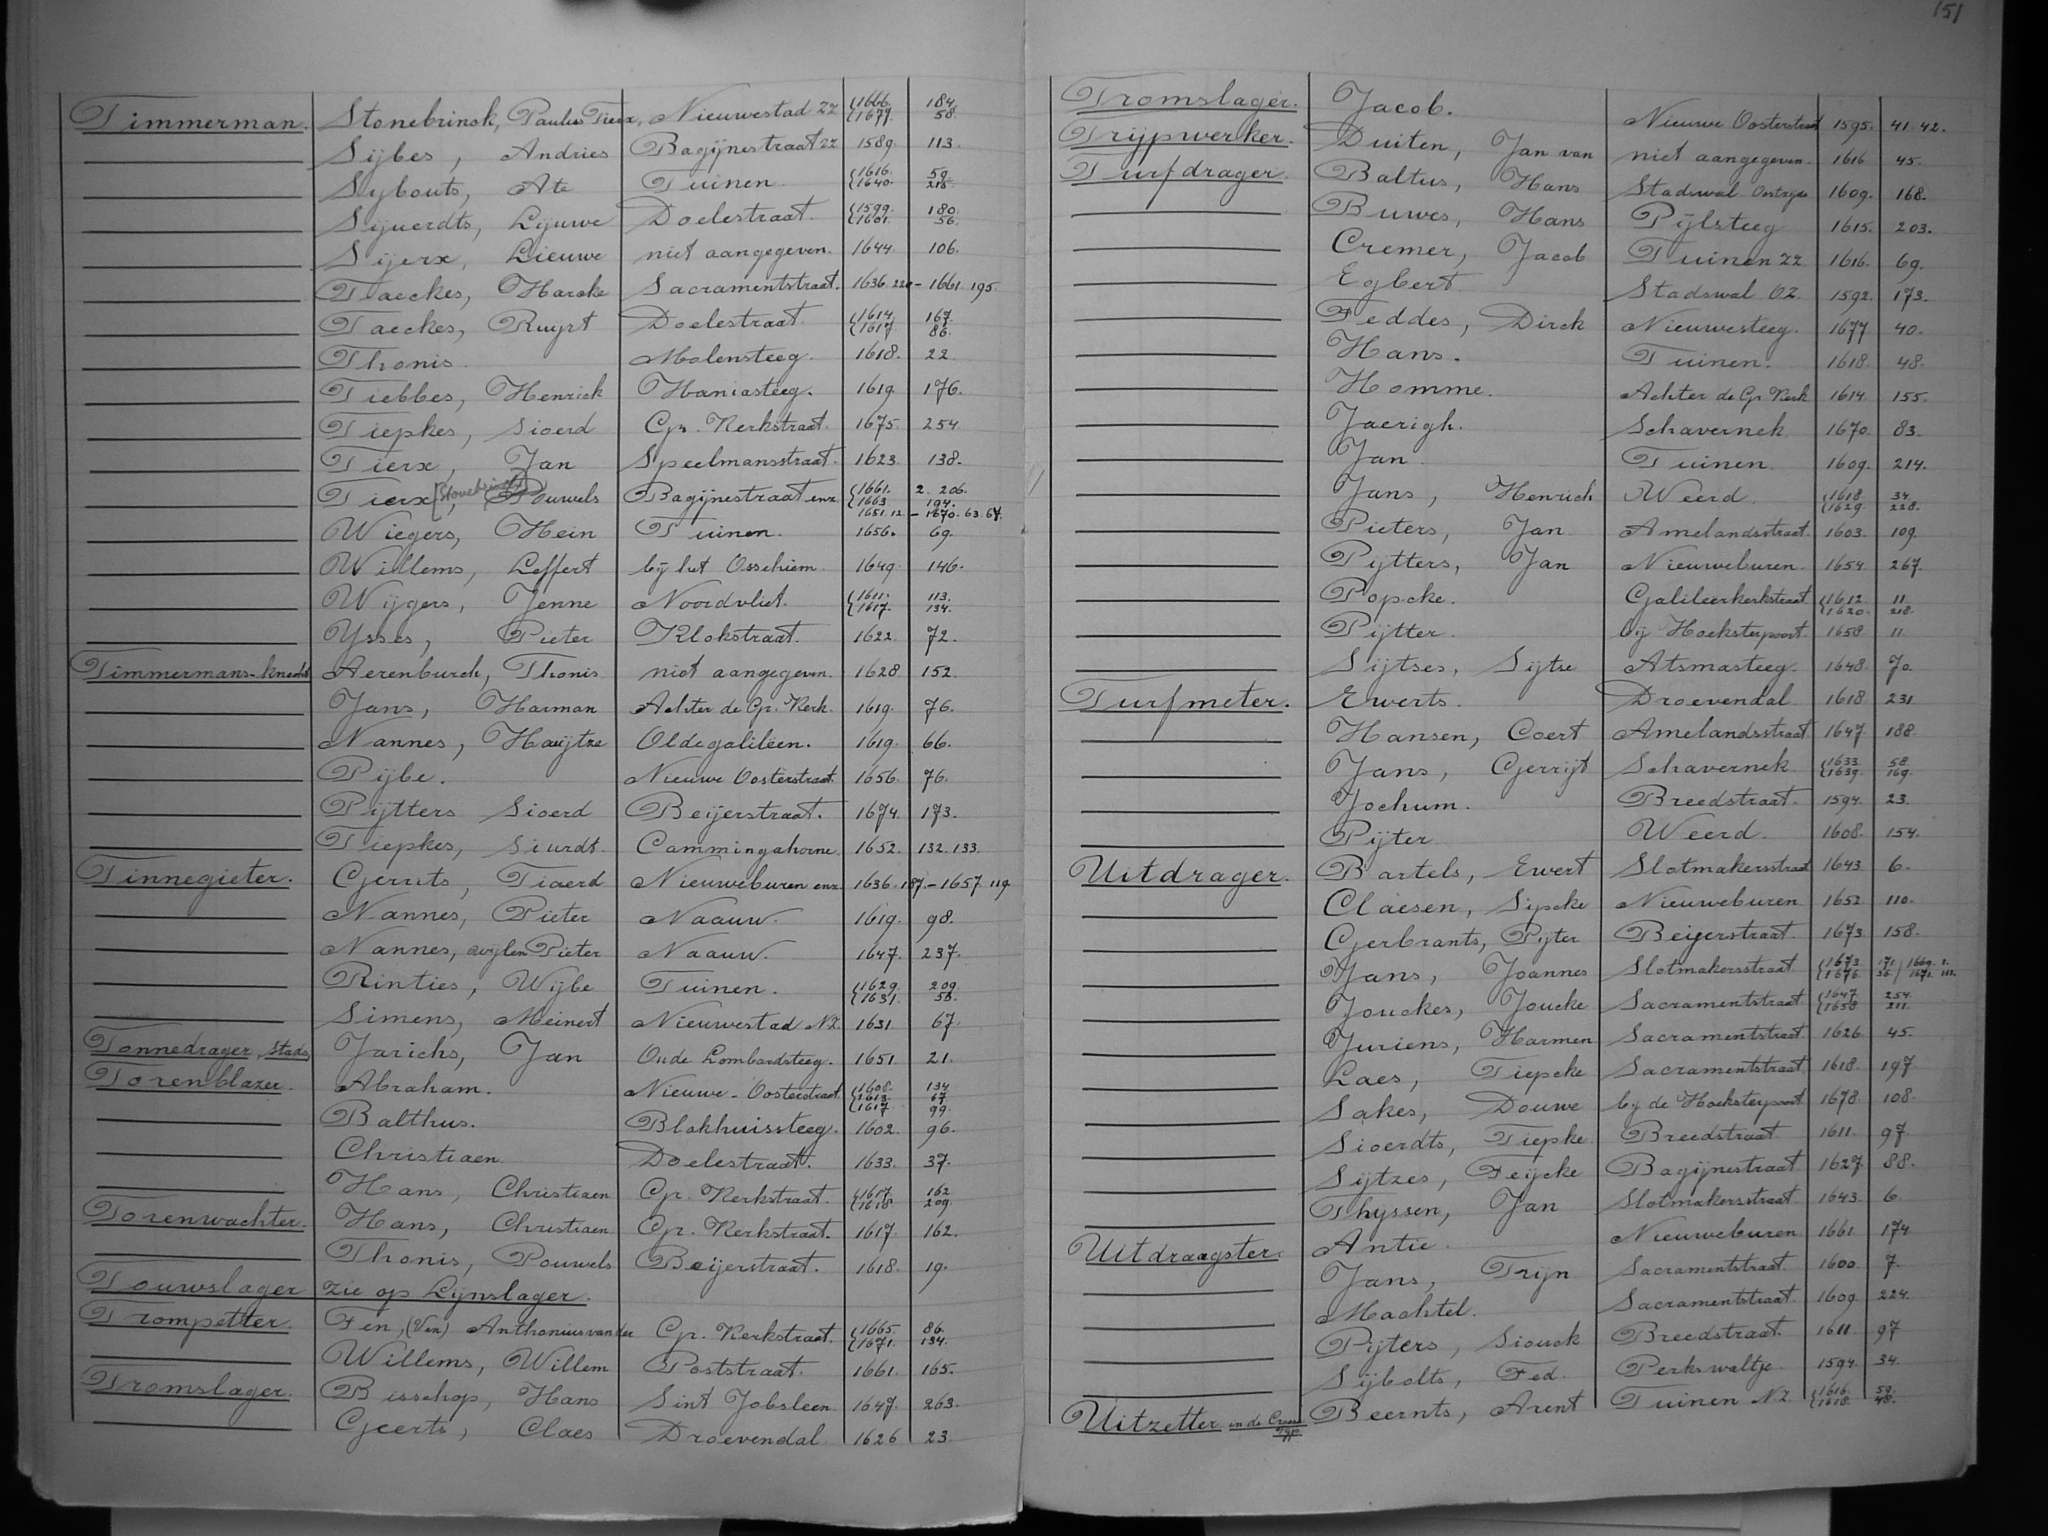 151
Timmerman. Stonebrinck, Paulus Tierx, Nieuwestad ZZ {1666. 184.
{1677. 58.
Sijbes, Andries Bagijnestraat ZZ 1589. 113.
Sybouts, Ate Tuinen {1616. 59.
{1640. 218.
Sijuerdts, Lyuwe Doelestraat. {1599. 180.
{1601. 56.
Sijerx, Lieuwe niet aangegeven. 1644. 106.
Taeckes, Harcke Sacramentstraat. 1636. 220 - 1661. 195.
Taeckes, Ruyrt Doelestraat. {1614. 167.
{1617. 86.
Thonis. Molensteeg. 1618. 22.
Tiebbes, Henrick Haniasteeg. 1619. 176.
Tiepkes, Sioerd Gr. Kerkstraat. 1675. 254.
Tierx, Jan Speelmansstraat. 1623. 138.
Tierx, Pouwels Bagijnestraat enz. {1661. 2. 206.
{1663. 194.
1651. 12. - 1670. 63. 64.
Wiegers, Hein Tuinen. 1656. 69.
Willems, Leffert bij het Osschiem. 1649. 146.
Wijgers, Jenne Noordvliet. {1611. 113.
{1617. 134.
Ysses, Pieter Klokstraat. 1622. 72.
Timmermans-knecht Aerenburch, Thonis. niet aangegeven. 1628. 152.
Jans, Harman Achter de Gr. Kerk. 1619. 76.
Nannes, Hauijtze Oldegalileen. 1619. 66.
Pijbe. Nieuwe Oosterstraat. 1656. 76.
Pijtters Sioerd Beijerstraat. 1674. 173.
Tiepkes, Siurdt. Cammingahorne. 1652. 132. 133.
Tinnegieter. Gerrits, Tiaerd Nieuweburen enz. 1636. 187. - 1657. 119.
Nannes, Pieter Naauw. 1619. 98.
Nannes, wijlen Pieter Naauw. 1647. 237.
Rinties, Wijbe Tuinen. {1629. 209.
{1631. 58.
Simens, Meinert Nieuwestad NZ. 1631 67.
Tonnedrager, Stads Jarichs, Jan Oude Lombardsteeg. 1651. 21.
Torenblazer. Abraham. Nieuwe-Oosterstraat. {1608. 134.
{1613. 67.
{1617 99.
Balthus. Blokhuissteeg. 1602. 96.
Christiaen. Doelestraat. 1633. 37.
Hans, Christiaen Gr. Kerkstraat. {1617. 162
{1618. 209.
Torenwachter. Hans, Christiaen Gr. Kerkstraat. 1617. 162.
Thonis, Pouwels Beijerstraat. 1618. 19.
Touwslager zie op Lijnslager.
Trompetter. Fen, (Ven) Anthonius van der Gr. Kerkstraat. {1665. 86.
{1671. 134.
Willems, Willem Poststraat. 1661. 165.
Tromslager. Bisschop, Hans Sint Jobsleen 1647. 263.
Geerts, Claes Droevendal. 1626 23.
Tromslager. Jacob. Nieuwe Oosterstraat 1595. 41. 42.
Trijpwerker. Duiten, Jan van niet aangegeven. 1616 45.
Turfdrager. Baltus, Hans Stadswal Oostzijde 1609. 168.
Buwes, Hans Pijlsteeg 1615. 203.
Cremer, Jacob Tuinen ZZ 1616. 69.
Egbert. Stadswal OZ. 1592. 173.
Feddes, Dirck Nieuwesteeg. 1677 40.
Hans. Tuinen. 1618 48.
Homme. Achter de Gr. Kerk 1614 155.
Jaerigh. Schavernek 1670. 83.
Jan Tuinen. 1609. 214.
Jans, Henrich Weerd. {1618. 34.
{1629. 228.
Pieters, Jan Amelandsstraat. 1603. 109.
Pijtters, Jan Nieuweburen. 1654. 267.
Popcke. Galileerkerkstraat. {1612. 11.
{1620. 218.
Pijtter. bij Hoeksterpoort. 1658 11.
Sijtses, Sijtse Atsmasteeg. 1648. 70.
Turfmeter. Ewerts. Droevendal. 1618 231.
Hansen, Coert Amelandsstraat 1647 188.
Jans, Gerrijt Schavernek {1633. 58.
{1639. 169.
Jochum. Breedstraat. 1594. 23.
Pijter Weerd. 1608. 154.
Uitdrager. Bartels, Ewert Slotmakersstraat 1643. 6.
Claesen, Sipcke Nieuweburen 1652 110.
Gerbrants, Pijter Beijerstraat. 1673. 158.
Jans, Joannes Slotmakersstraat {1673. 171.
{1676. 36.
Jouckes, Joucke Sacramentstraat {1647. 254.
{1658 211.
Juriens, Harmen Sacramentstraat 1626 45.
Laes, Tiepcke Sacramentstraat 1618. 197
Sakes, Douwe bij de Hoeksterpoort 1678. 108.
Sioerdts, Tiepke Breedstraat. 1611. 97
Sijtzes, Feijcke Bagijnestraat 1627. 88.
Thyssen, Jan Slotmakersstraat 1643. 6.
Uitdraagster. Antie. Nieuweburen 1661. 174.
Jans, Trijn Sacramentstraat. 1600. 7.
Machtel. Sacramentstraat. 1609. 224.
Pijters, Siouck Breedstraat. 1611. 97
Sijbolts, Fed. Perkswaltje. 1594. 34.
Uitzetter in de Beernts, Arent Tuinen NZ. {1616. 59.
{1618. 48.